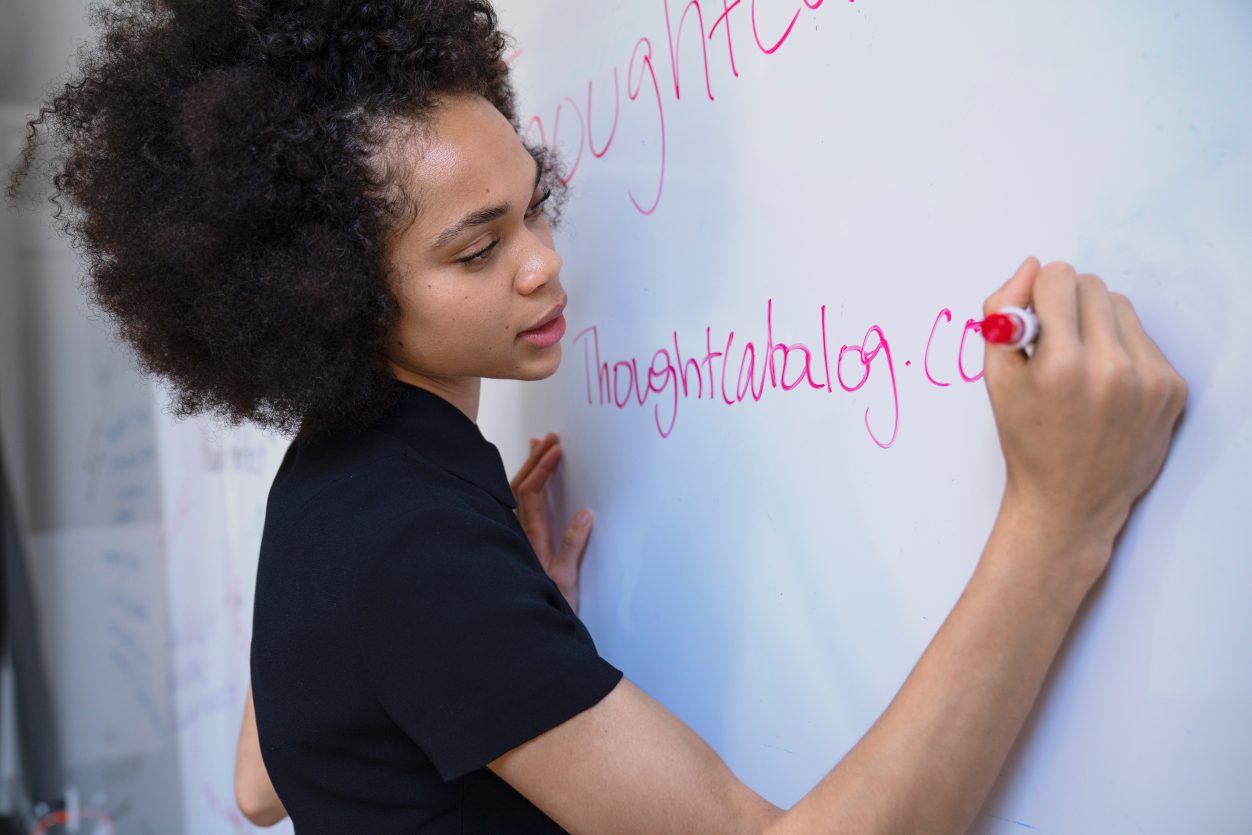 oughtCa
ThoughtCatalog.co